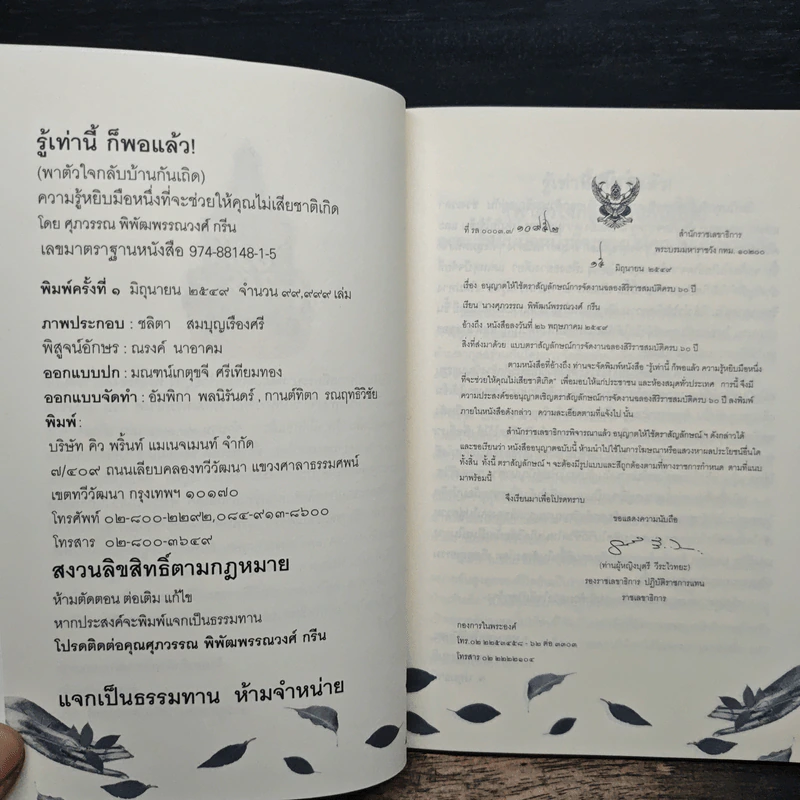 รู้เท่านี้ ก็พอแล้ว!
(พาตัวใจกลับบ้านกันเถิด)
ความรู้หยิบมือหนึ่งที่จะช่วยให้คุณไม่เสียชาติเกิด
โดย ศุภวรรณ พิพัฒพรรณวงศ์ กรีน
เลขมาตราฐานหนังสือ 974-88148-1-5
พิมพ์ครั้งที่ ๑ มิถุนายน ๒๕๔๙ จำนวน ๙๙,๙๙๙ เล่ม
ภาพประกอบ : ชลิตา สมบุญเรืองศรี
พิสูจน์อักษร : ณรงค์ นาอาคม
ออกแบบปก : มณฑน์เกตุขจี ศรีเทียมทอง
ออกแบบจัดทำ : อัมพิกา พลนิรันดร์ , กานต์ทิตา รณฤทธิวิชัย
พิมพ์ :
บริษัท คิว พริ้นท์ แมเนจเมนท์ จำกัด
๗/๔๐๙ ถนนเลียบคลองทวีวัฒนา แขวงศาลาธรรมศพน์
เขตทวีวัฒนา กรุงเทพฯ ๑๐๑๗๐
โทรศัพท์ ๐๒-๘๐๐-๒๒๙๒,๐๘๔-๙๑๓-๘๖๐๐
โทรสาร ๐๒-๘๐๐-๓๖๔๙
สงวนลิขสิทธิ์ตามกฎหมาย
ห้ามตัดตอน ต่อเติม แก้ไข
หากประสงค์จะพิมพ์แจกเป็นธรรมทาน
โปรดติดต่อคุณศุภวรรณ พิพัฒพรรณวงศ์ กรีน
แจกเป็นธรรมทาน ห้ามจำหน่าย
ที่ รล ๐๐๐๓.๗/
สำนักราชเลขาธิการ
พระบรมมหาราชวัง กทม. ๑๐๒๐๐
มิถุนายน ๒๕๔๙
เรื่อง อนุญาตให้ใช้ตราสัญลักษณ์การจัดงานฉลองสิริราชสมบัติครบ ๖๐ ปี
เรียน นางศุภวรรณ พิพัฒน์พรรณวงศ์ กรีน
อ้างถึง หนังสือลงวันที่ ๒๖ พฤษภาคม ๒๕๔๙
สิ่งที่ส่งมาด้วย แบบตราสัญลักษณ์การจัดงานฉลองสิริราชสมบัติครบ ๖๐ ปี
ตามหนังสือที่อ้างถึง ท่านจะจัดพิมพ์หนังสือ "รู้เท่านี้ ก็พอแล้ว ความรู้หยิบมือหนึ่ง
ที่จะช่วยให้คุณไม่เสียชาติเกิด" เพื่อมอบให้แก่ประชาชน และห้องสมุดทั่วประเทศ การนี้ จึงมี
ความประสงค์ขออนุญาตเชิญตราสัญลักษณ์การจัดงานฉลองสิริราชสมบัติครบ ๖๐ ปี ลงพิมพ์
ภายในหนังสือดังกล่าว ความละเอียดตามที่แจ้งไป นั้น
สำนักราชเลขาธิการพิจารณาแล้ว อนุญาตให้ใช้ตราสัญลักษณ์ ฯ ดังกล่าวได้
และขอเรียนว่า หนังสืออนุญาตฉบับนี้ ห้ามนำไปใช้ในการโฆษณาหรือแสวงหาผลประโยชน์อื่นใด
ทั้งสิ้น ทั้งนี้ ตราสัญลักษณ์ ฯ จะต้องมีรูปแบบและสีถูกต้องตามที่ทางราชการกำหนด ตามที่แนบ
มาพร้อมนี้
จึงเรียนมาเพื่อโปรดทราบ
ขอแสดงความนับถือ
(ท่านผู้หญิงบุตรี วีระไวทยะ)
รองราชเลขาธิการ ปฏิบัติราชการแทน
ราชเลขาธิการ
กองการในพระองค์
โทร.๐๒ ๒๒๕๓๔๕๘ - ๖๒ ต่อ ๓๓๐๓
โทรสาร ๐๒ ๒๒๒๒๑๐๔